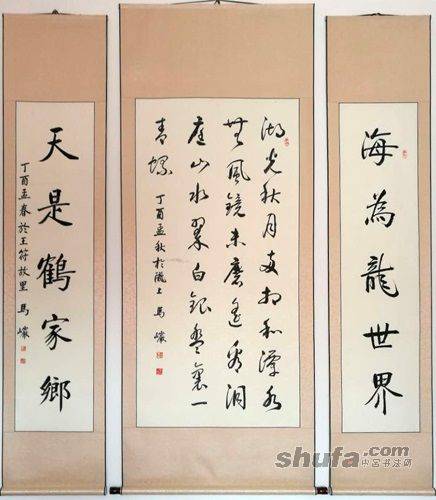 海為龍世界
湖光秋月兩相和潭水
無風鏡未磨遙看洞
庭山水翠白銀盤裏一
青螺
丁酉孟秋於隴上 馬
天是鶴家鄉
丁酉孟春於王符故里 馬
shufa.com
中国书法网